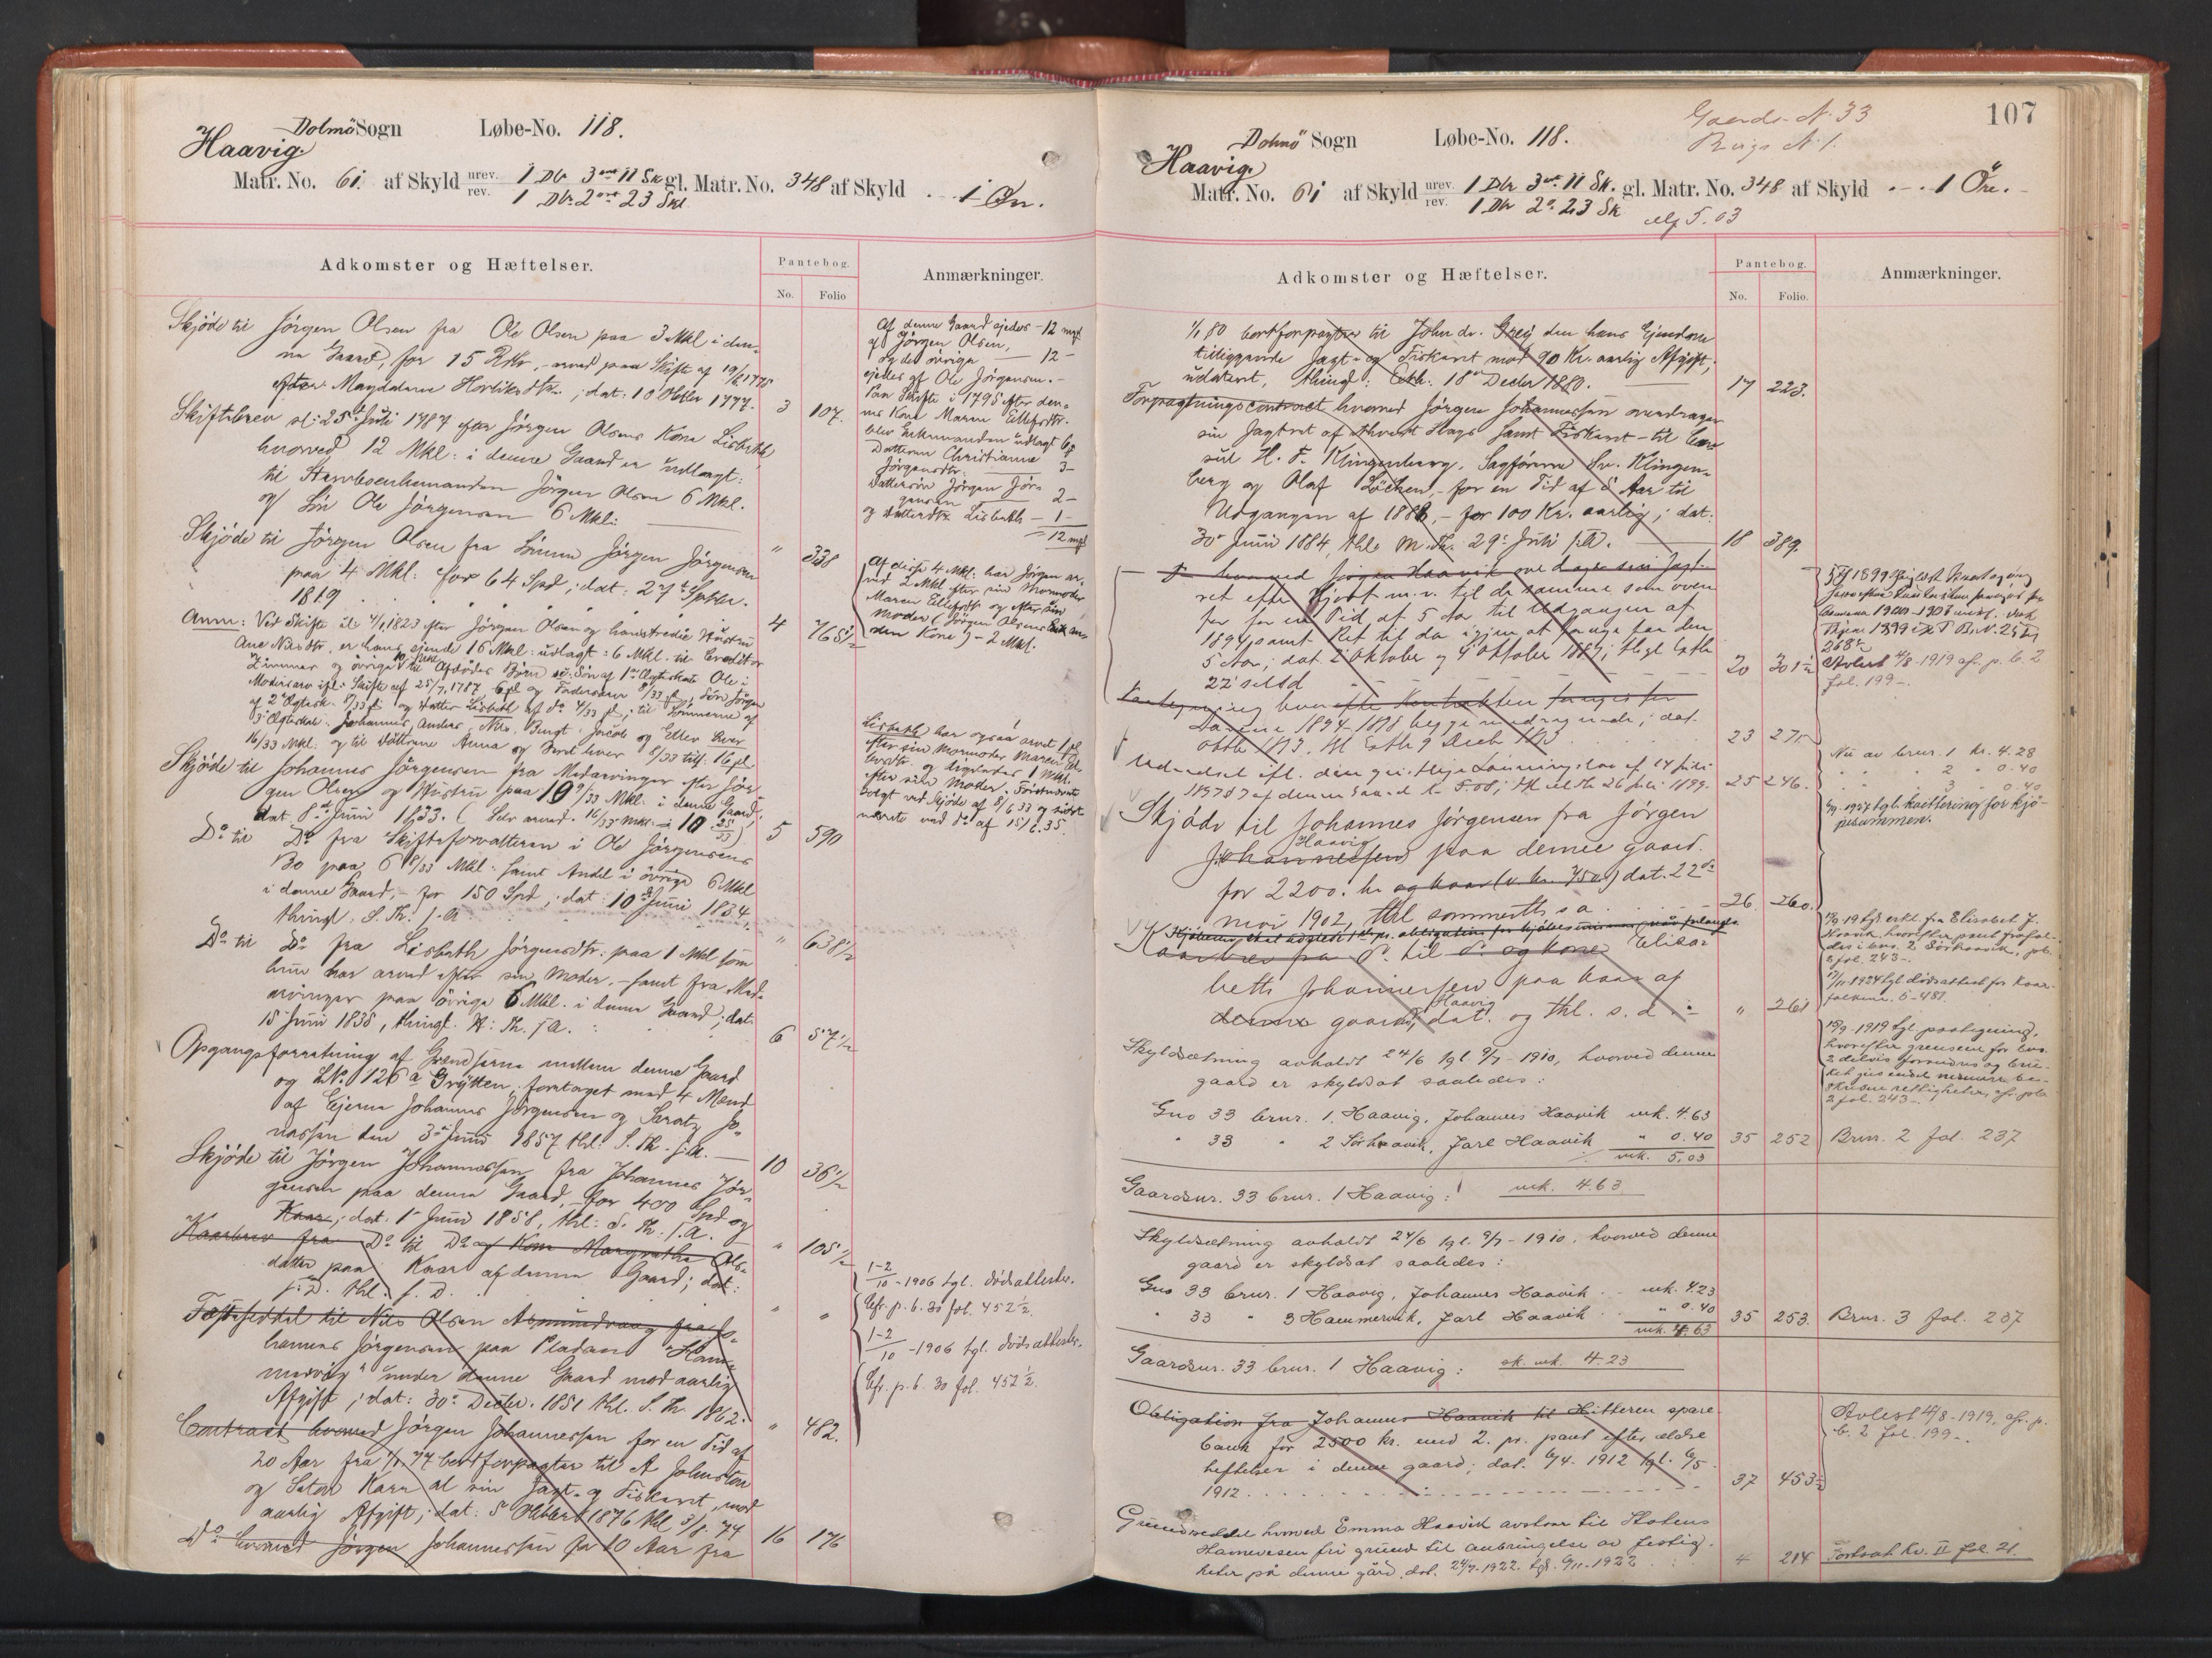 Dolmö Sogn Løbe-No. 118.
Haavig.
Matr. No. 61. af Skyld urev. 1 Dlr 3 ort 11 Sk gl. Matr. No. 348 af Skyld - 1 Øre.
rev. 1 Dlr. 2 ort 23 Skl
Adkomster og Hæftelser.
Pantebog.
No. Folio
Anmærkninger.
Skjöde til Jörgen Olsen fra Ole Olsen paa 3 Mkl i den-
ne Gaard, for 15 Rdlr, - arvet paa Skifte af 19/6 1775
efter Magdalena ; dat: 10 Oktbr 1777. 3 107.
Skiftebrev d: 25t Juli 1787 efter Jörgen Olsens Kone Lisbeth,
hvorved 12 Mkl: i denne Gaard er udlagt:
til Stervboenkemanden Jörgen Olsen 6 Mkl.
og Sön Ole Jörgensen 6 Mkl: " 338
Skjöde til Jörgen Olsen fra Sönnen Jörgen Jörgensen
paa 4 Mkl: for 64 Spd; dat: 27t Septbr.
1819 4 765 1/2
Anm: Ved Skifte 1823 efter Jörgen Olsen og hans tredie Hustru
Ane Nilsdtr. er hans ejende 16 Mkl: udlagt: 6 Mkl. til Creditor
Zimmer og övrige 10 Mkl til Afdödes Börn
Mödrearv ifl: Skifte af 25/7 1787
af 2t Ægtesk. og Datter Lisbeth af do 4/33 ; til Sönnerne af
3 Ægteskab: Johannes, Anders, Nils, Bengt, Jacob og Eller hver
16/33 Mkl. og til Döttrene Anna og Beret hver 8/33 tils. 16
Skjöde til Johannes Jörgensen fra Medarvinger efter Jör-
gen Olsen og Hustru paa 10 9/33 Mkl. i denne Gaard,
dat. 8d Juni 1833. (Selv arvet 16/33 Mkl. = 10 25/33) 5 590
Do til Do fra Skifteforvalteren i Ole Jörgensens
Bo paa 6 8/33 Mkl. samt Andel i övrige 6 Mkl
i denne Gaard, - for 150 Spd, dat: 10d Juni 1834
thingl. S. Th: s. A. " 638 1/2
Do til Do fra Lisbeth Jörgensdtr. paa 1 Mkl som
hun har arvet efter sin Moder, - samt fra Med-
arvinger paa övrige 6 Mkl. i denne Gaard; dat.
15 Juni 1835, thingl. S: Th. s A. 6 57 1/2
Opgangsforretning af Grændserne mellem denne Gaard
og LNo. 126 a Grÿtten, foretaget med 4 Mænd
af Ejerne Johannes Jörgensen og Jo-
nassen den 3d Juni 1857 thl: S. Th. s. A. 10 36 1/2
Skjöde til Jörgen Johannessen fra Johannes Jör-
gensen paa denne Gaard, for 400 Spd og
Kaar; dat. 1 Juni 1858, thl: S. Th: s. A. " 105 1/2
Kaarbrev fra Do til Do af Kone Margrethe Ols-
datter paa Kaar af denne Gaard; dat:
s. D. thl: s. D. " "
Fæsteseddel til Nils Olsen Asmundvaag fra Jo-
hannes Jörgensen paa Pladsen "Ham-
mervig" under denne Gaard mod aarlig
Afgift; dat: 30: Decbr. 1851 thl. S. Th. 1862. " 482.
Contract hvorved Jörgen Johannessen for en Tid af
20 Aar fra 1/1 77 bortforpagter til A. Johnston
og al sin Jagt- og Fiskeret, mod
aarlig Afgift; dat: 5 Oktober 1876 thl 3/8. 77 16 176
Do hvorved Jörgen Johannessen for 10 Aar fra
Af denne Gaard ejedes - 12 mgl
af Jörgen Olsen,
og det övrige — 12 -
ejedes af Ole Jörgensen. -
Paa Skifte i 1795 efter den-
nes Kone Maren Ellefsdtr.
blev Enkemanden udlagt 6
Datteren Christianne
Jörgensdtr. — 3 -
Dattersön Jörgen Jör-
gensen — 2 -
og Datterdtr. Lisbeth - 1 -
= 12 mgl
Af disse 4 Mkl: har Jörgen ar-
vet 2 Mkl efter sin Mormoder
Maren Ellefsdtr og efter sin
Moder (Jörgen Olsens an-
den Kone) - 2 Mkl.
Lisbeth har ogsaa arvet 1
efter sin Mormoder Maren El-
lefsdtr. og ligeledes 1 Mkl.
efter sin Moder. Förstnævnte
solgt ved Skjöde af 8/6 33 og sidst-
nævnte ved do af 15/6. 35.
1-2/10 - 1906 tgl. dödsattester.
Cfr. p. b. 30 fol. 452 1/2.
1-2/10 - 1906 tgl. dödsattester.
Cfr. p. b. 30 fol. 452 1/2.
107
Gaards-N. 33
Brugs N. 1.
Dolmö Sogn Løbe-No. 118.
Haavig.
Matr. No. 61 af Skyld urev. 1 Dlr 3 ort 11 Sk. gl. Matr. No. 348 af Skyld - 1 Öre.
rev. 1 Dlr 2 o. 23 Sk
5.03
Adkomster og Hæftelser.
Pantebog.
No. Folio.
Anmærkninger.
1/1 80 bortforpagter til John de Grey den hans Ejendom
tilliggende Jagt- og Fiskeret mod 90 Kr. aarlig Afgift;
udateret, thingl: Exth. 18de Decbr 1880. 17 223.
Forpagtningscontract hvorved Jörgen Johannessen overdrager
sin Jagtret af ethvert Slags samt Fiskeret - til Con-
sul H. F. Klingenberg, Sagförerne Sv. Klingen-
berg og Olaf Löcken, - for en Tid af 5 Aar til
Udgangen af 1888, - for 100 Kr. aarlig; dat:
30 Juni 1884, thl. M. Th. 29: Juli s. A. 18 389.
Do hvorved Jörgen Haavik overdrager sin Jagt-
ret efter Hjort m. v. til de samme som oven-
for for en Tid af 5 Aar til Udgangen af
1894 samt Ret til da igjen at forny for den
5 Aar; dat. 2 Oktober og 4 Oktober 1889; thgl Exth
22 s. Md 20 301 1/2
Paategning hvorefter Kontrakten fornyes for
Aarene 1894-1898 begge inclusive; dat.
Oktbr 1893. thl Exth 9 Decb 1893 23 275
Udmelding ifl. den geistlige Lönningslov af 14 Juli
1897 af denne Gaard kr 5.08; thl 26 Juli 1899. 25 246.
Skjöde til Johannes Jørgensen fra Jørgen
Haavig
Johannesen paa denne gaard.
for 2200: kr og kaar (v. kr. 750.) dat. 22de
mai 1902, thl sommerth s a 26. 260.
Kaarbrev fra Do. til Do. og kone Elisa-
beth Johannesen paa kaar af
Haavig
denne gaard, dat. og thl. s. d. " 261
Skyldsætning avholdt 24/6 tgl. 9/7 - 1910, hvorved denne
gaard er skyldsat saaledes:
Gno 33 brnr. 1. Haavig, Johannes Haavik mk. 4.63
" 33 " 2 Sörhaavik, Jarl Haavik " 0.40 35 252
mk. 5.03
Gaardsnr. 33 brnr. 1 Haavig: mk. 4.63
Skyldsætning avholdt 24/6 tgl. 9/7 - 1910. hvorved denne
gaard er skyldsat saaledes:
Gno 33 brnr. 1 Haavig, Johannes Haavik . . mk. 4.23
" 33 " 3 Hammervik, Jarl Haavik . " 0.40 35 253.
mk. 4.63
Gaardsnr. 33 brnr. 1 Haavig: sk. mk. 4.23
Obligation fra Johannes Haavik til Hitteren spare-
bank for 2500 kr. med 2. pr. pant efter ældre
heftelser i denne gaard; dat. 6/4. 1912 tgl. 6/5
1912 37 453
Grundseddel hvorved Emma Haavik avstaar til Statens
Havnevesen fri grund til anbringelse av festig-
heter på denne gård. dat. 24/7-1922. tgl. 6/11-1922 4 214
Avlest 4/8 - 1919 cfr. p. b. 2
fol. 199 -.
Nu av brnr. 1 kr. 4.28
" " " 2 " 0.40
" " " 3 " 0.40
1927 tgl. kvittering for kjö-
pesummen.
19 tgl. erkl. fra Elisabet J.
Haavik, hvorefter pant frafal-
des i bno. 2 Sörhaavik, pb.
2 fol. 243 -
17/11 1924 tgl. dödsattest for kaar-
folkene. 5-481.
1919 tgl. paategning,
hvorefter grensene for bno.
2 delvis forandres og bru-
ket gies endel nærmere be-
skrevne rettigheter, cfr. pb.
2 fol. 243 -
Brnr. 2 fol. 237
Brnr. 3 fol. 237
Avlest 4/8 - 1919, cfr. p.
b. 2 fol. 199 -.
Fortsat Kv. II fol. 21.